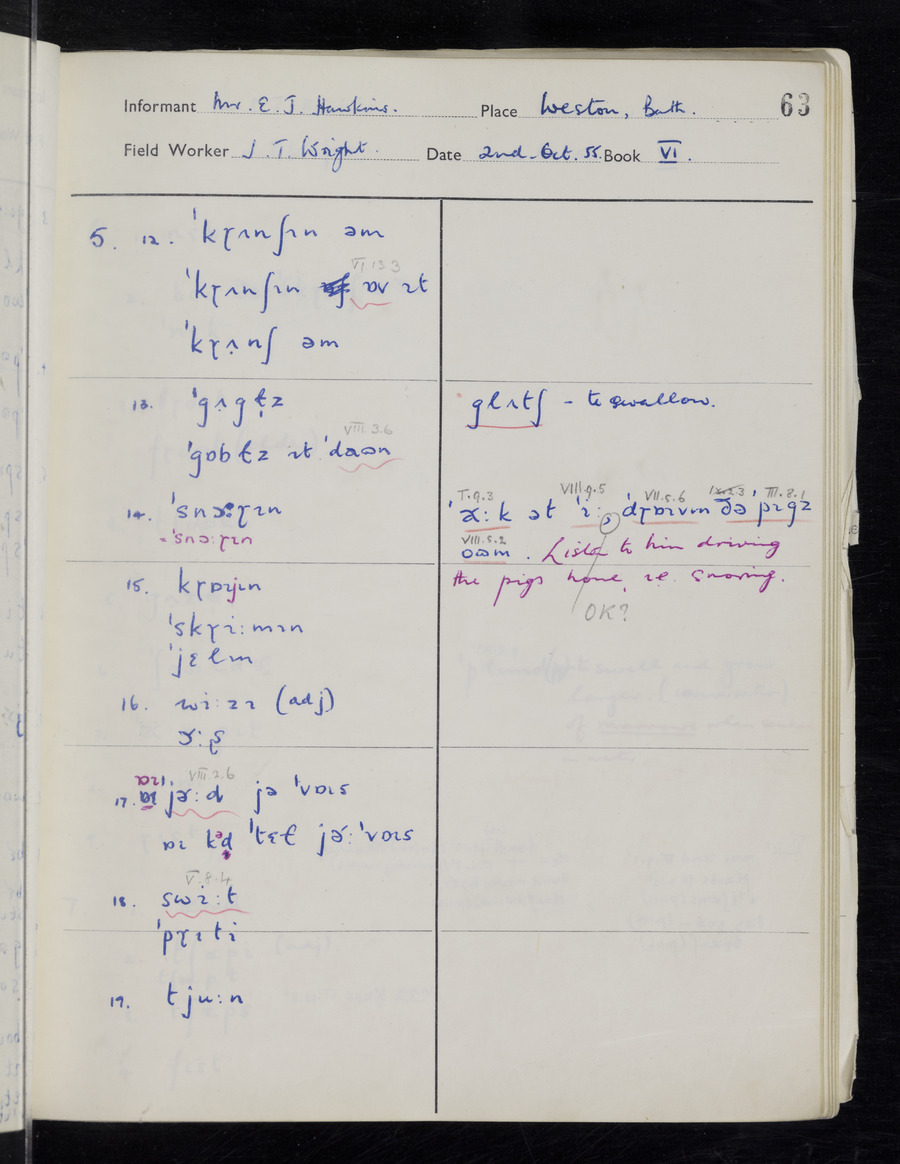 Informant Mr. E. J. Hawkins. Place Weston, Bath. 63
Field Worker J. T. Wright. Date 2nd. Oct. 55. Book VI.
5. 12. ˈkɼʌnʃɪn əm
VI.13.3
ˈkɼʌnʃɪn ɒv ɪt
ˈkɼʌ̣nʃ əm
13. ˈgʌ̣gɫ̩z
glʌtʃ – to swallow.
VIII.3.6
ˈgɒbɫz ɪt ˈdaʊn
14. ˈsnɔːɼɪn
ˈsnɔːɼɪn
T.9.3 VIII.9.5 VII.5.6 IX.2.3 III.8.1
ˈɚːk ət ˈiː, ˈdɼɒɪvɪn ðə ˈpɪgz
VIII.5.2
oəm. Listen to him driving
the pigs home, i.e. snoring.
OK?
15. kɼɒɪjɪn
ˈskɼiːmɪn
ˈjɛlɪn
16. wiːzɪ (adj)
17. VIII.2.6
jɚːd jə ˈvɒɪs
ɒɪ kəd ˈtɛɫ jɚː ˈvɒɪs
V.8.4
18. swiːt
ˈpɼɪti
19. tjuːn